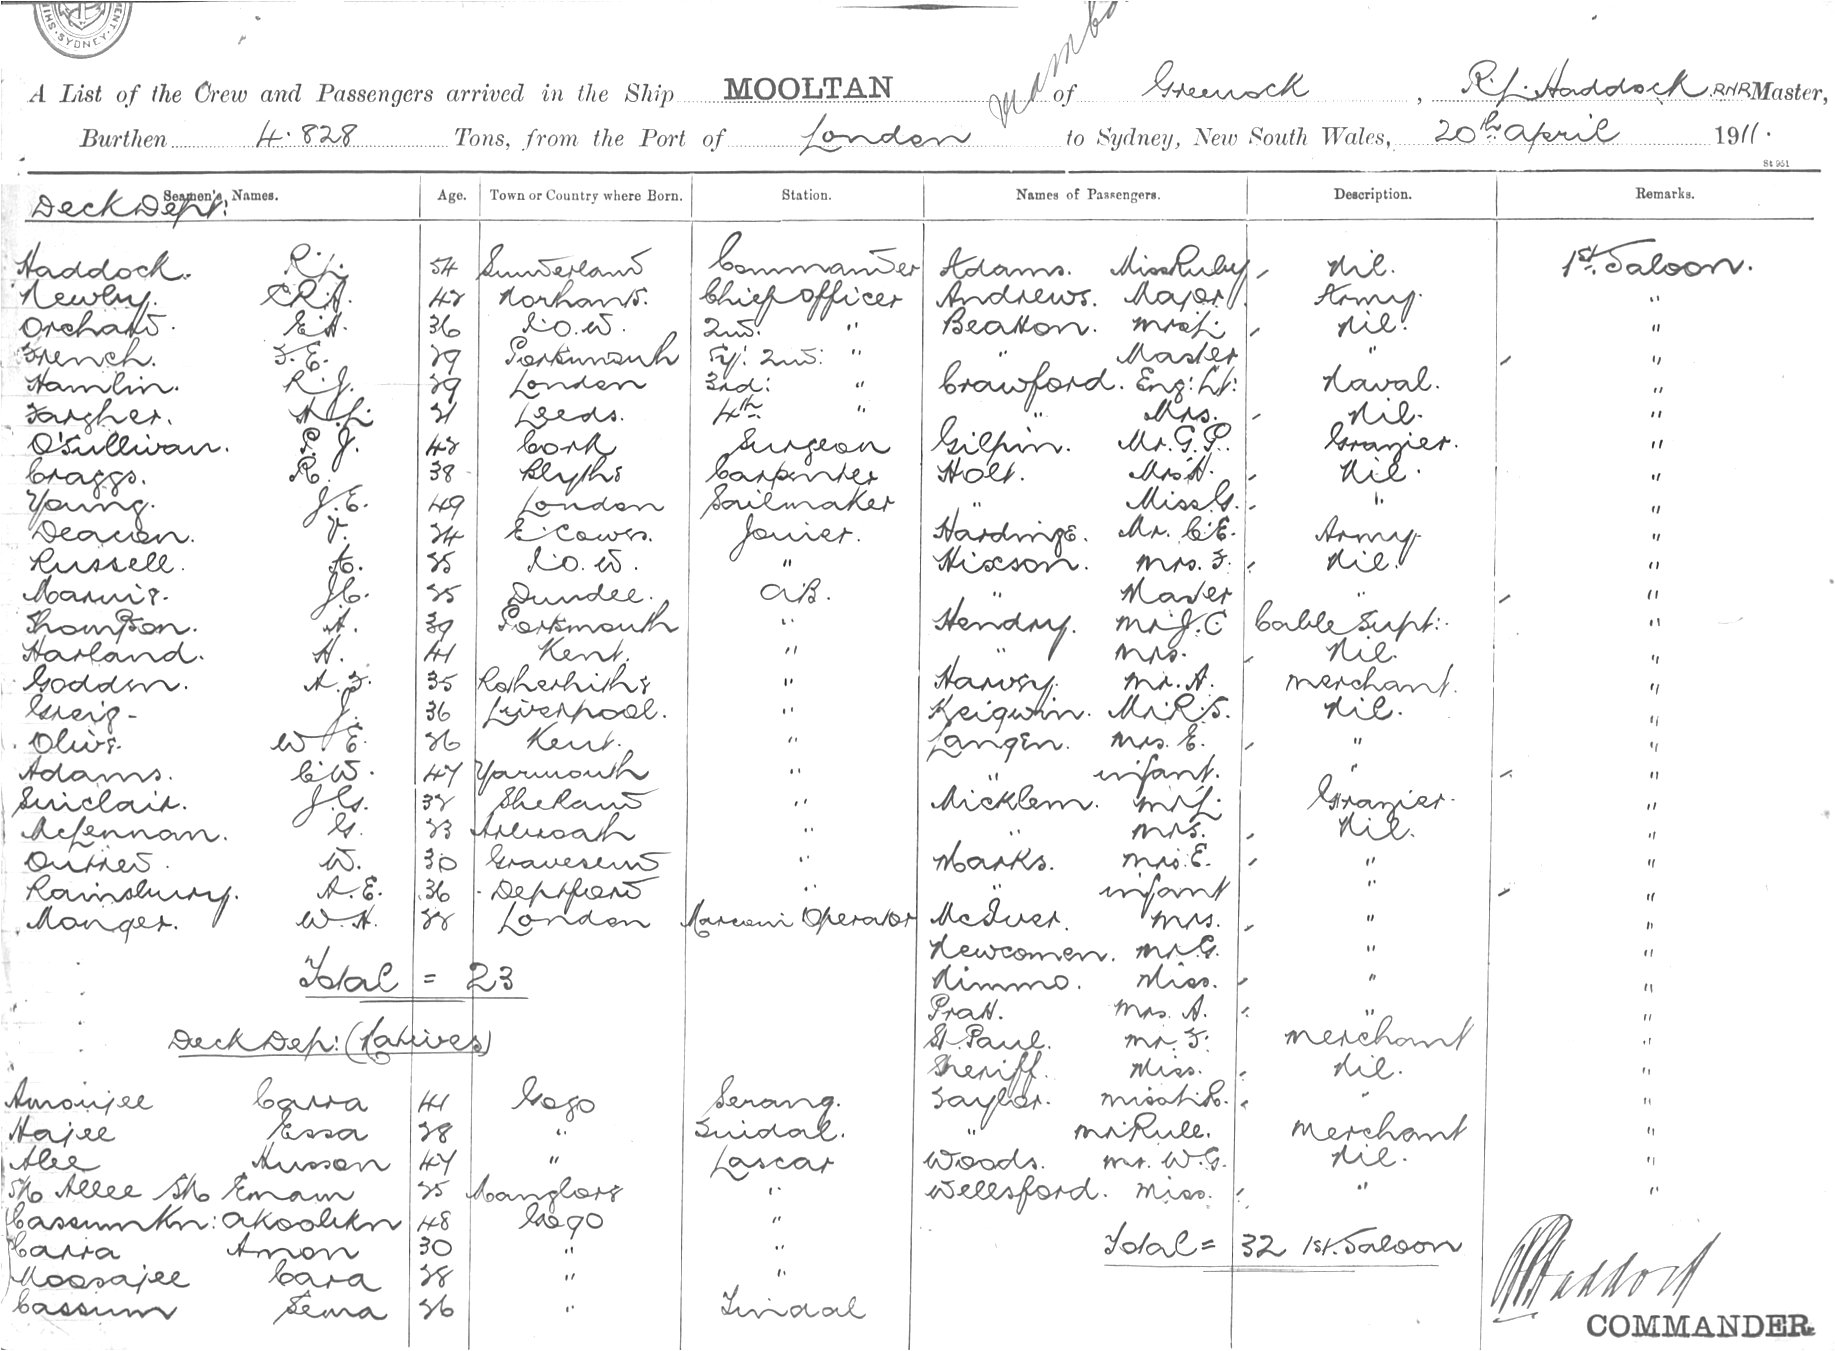 SYDNEY
mambo
A List of the Crew and Passengers arrived in the Ship MOOLTAN of Greenock, R.L. Haddock RNR Master,
Burthen 4.828 Tons, from the Port of London to Sydney, New South Wales, 20th April 1911.
St 951
Seamen's Names. Age. Town or Country where Born. Station. Names of Passengers. Description. Remarks.
Deck Dept:
Haddock. R.L. 54 Sunderland Commander Adams. Miss Ruby Nil. 1st. Saloon.
Newby. C.R.A. 42 Norhants. Chief Officer Andrews. Major Army. "
Orchard. E.A. 36 I.O.W. 2nd. " Beatton. Mrs L. Nil. "
French. F.E. 29 Portsmouth Sy: 2nd: " " Master " "
Hamlin. R.J. 29 London 3rd: " Crawford. Eng: Lt: Naval. "
Fargher. A.L. 21 Leeds. 4th " " Mrs. Nil. "
O'Sullivan. P.J. 42 Cork Surgeon Gilpin. Mr. G.P. Grazier. "
Craggs. R. 38 Blythe Carpenter Holt. Mrs H. Nil. "
Young. J.E. 49 London Sailmaker " Miss G. " "
Deacon. V. 24 E. Cowes. Joiner. Hardinge. Mr. C.E. Army. "
Russell. A. 25 I.O.W. " Hixson. Mrs. F. Nil. "
Marnie. J.C. 25 Dundee. A.B. " Master " "
Thompson. A. 39 Portsmouth " Hendry. Mr J.C Cable Supt: "
Harland. H. 41 Kent. " " Mrs. Nil. "
Godden. A.F. 35 Rotherhithe " Harvey. Mr. A. Merchant. "
Greig. J. 36 Liverpool. " Keigwin. Mr. R.S. Nil. "
Olive. W E. 26 Kent. " Langen. Mrs. E. " "
Adams. C.W. 47 Yarmouth " " infant. " "
Sinclair. J.G. 32 Shetland " Micklem. Mr L. Grazier. "
McLennan. G. 23 Arbroath " " Mrs. Nil. "
Outred. W. 30 Gravesend " Marks. Mrs. E. " "
Rainsbury. A.E. 36 Deptford " " infant " "
Monger. W.H. 22 London Marconi Operator McIver. Mrs. " "
Newcomen. Mr G. " "
Total = 23 Nimmo. Miss. " "
Pratt. Mrs. A. " "
Deck Dep: (Natives) St. Paul. Mr. F. Merchant "
Sheriff. Miss. Nil. "
Amoojee Carra 41 Gogo Serang. Taylor. Miss " "
Hajee Essa 28 " Tindal. " Mr Rule. Merchant "
Alee Husson 47 " Lascar Woods. Mr. W.G. Nil. "
Sk Allee Sk Emam 25 Manglore " Wellsford. Miss. " "
Cassumkn: Akoolikn 48 Gogo "
Carra Amon 30 " " Total = 32 1st. Saloon
Moosajee Cara 28 " "
Cassum Sema 26 " Tindal
Haddock
COMMANDER.